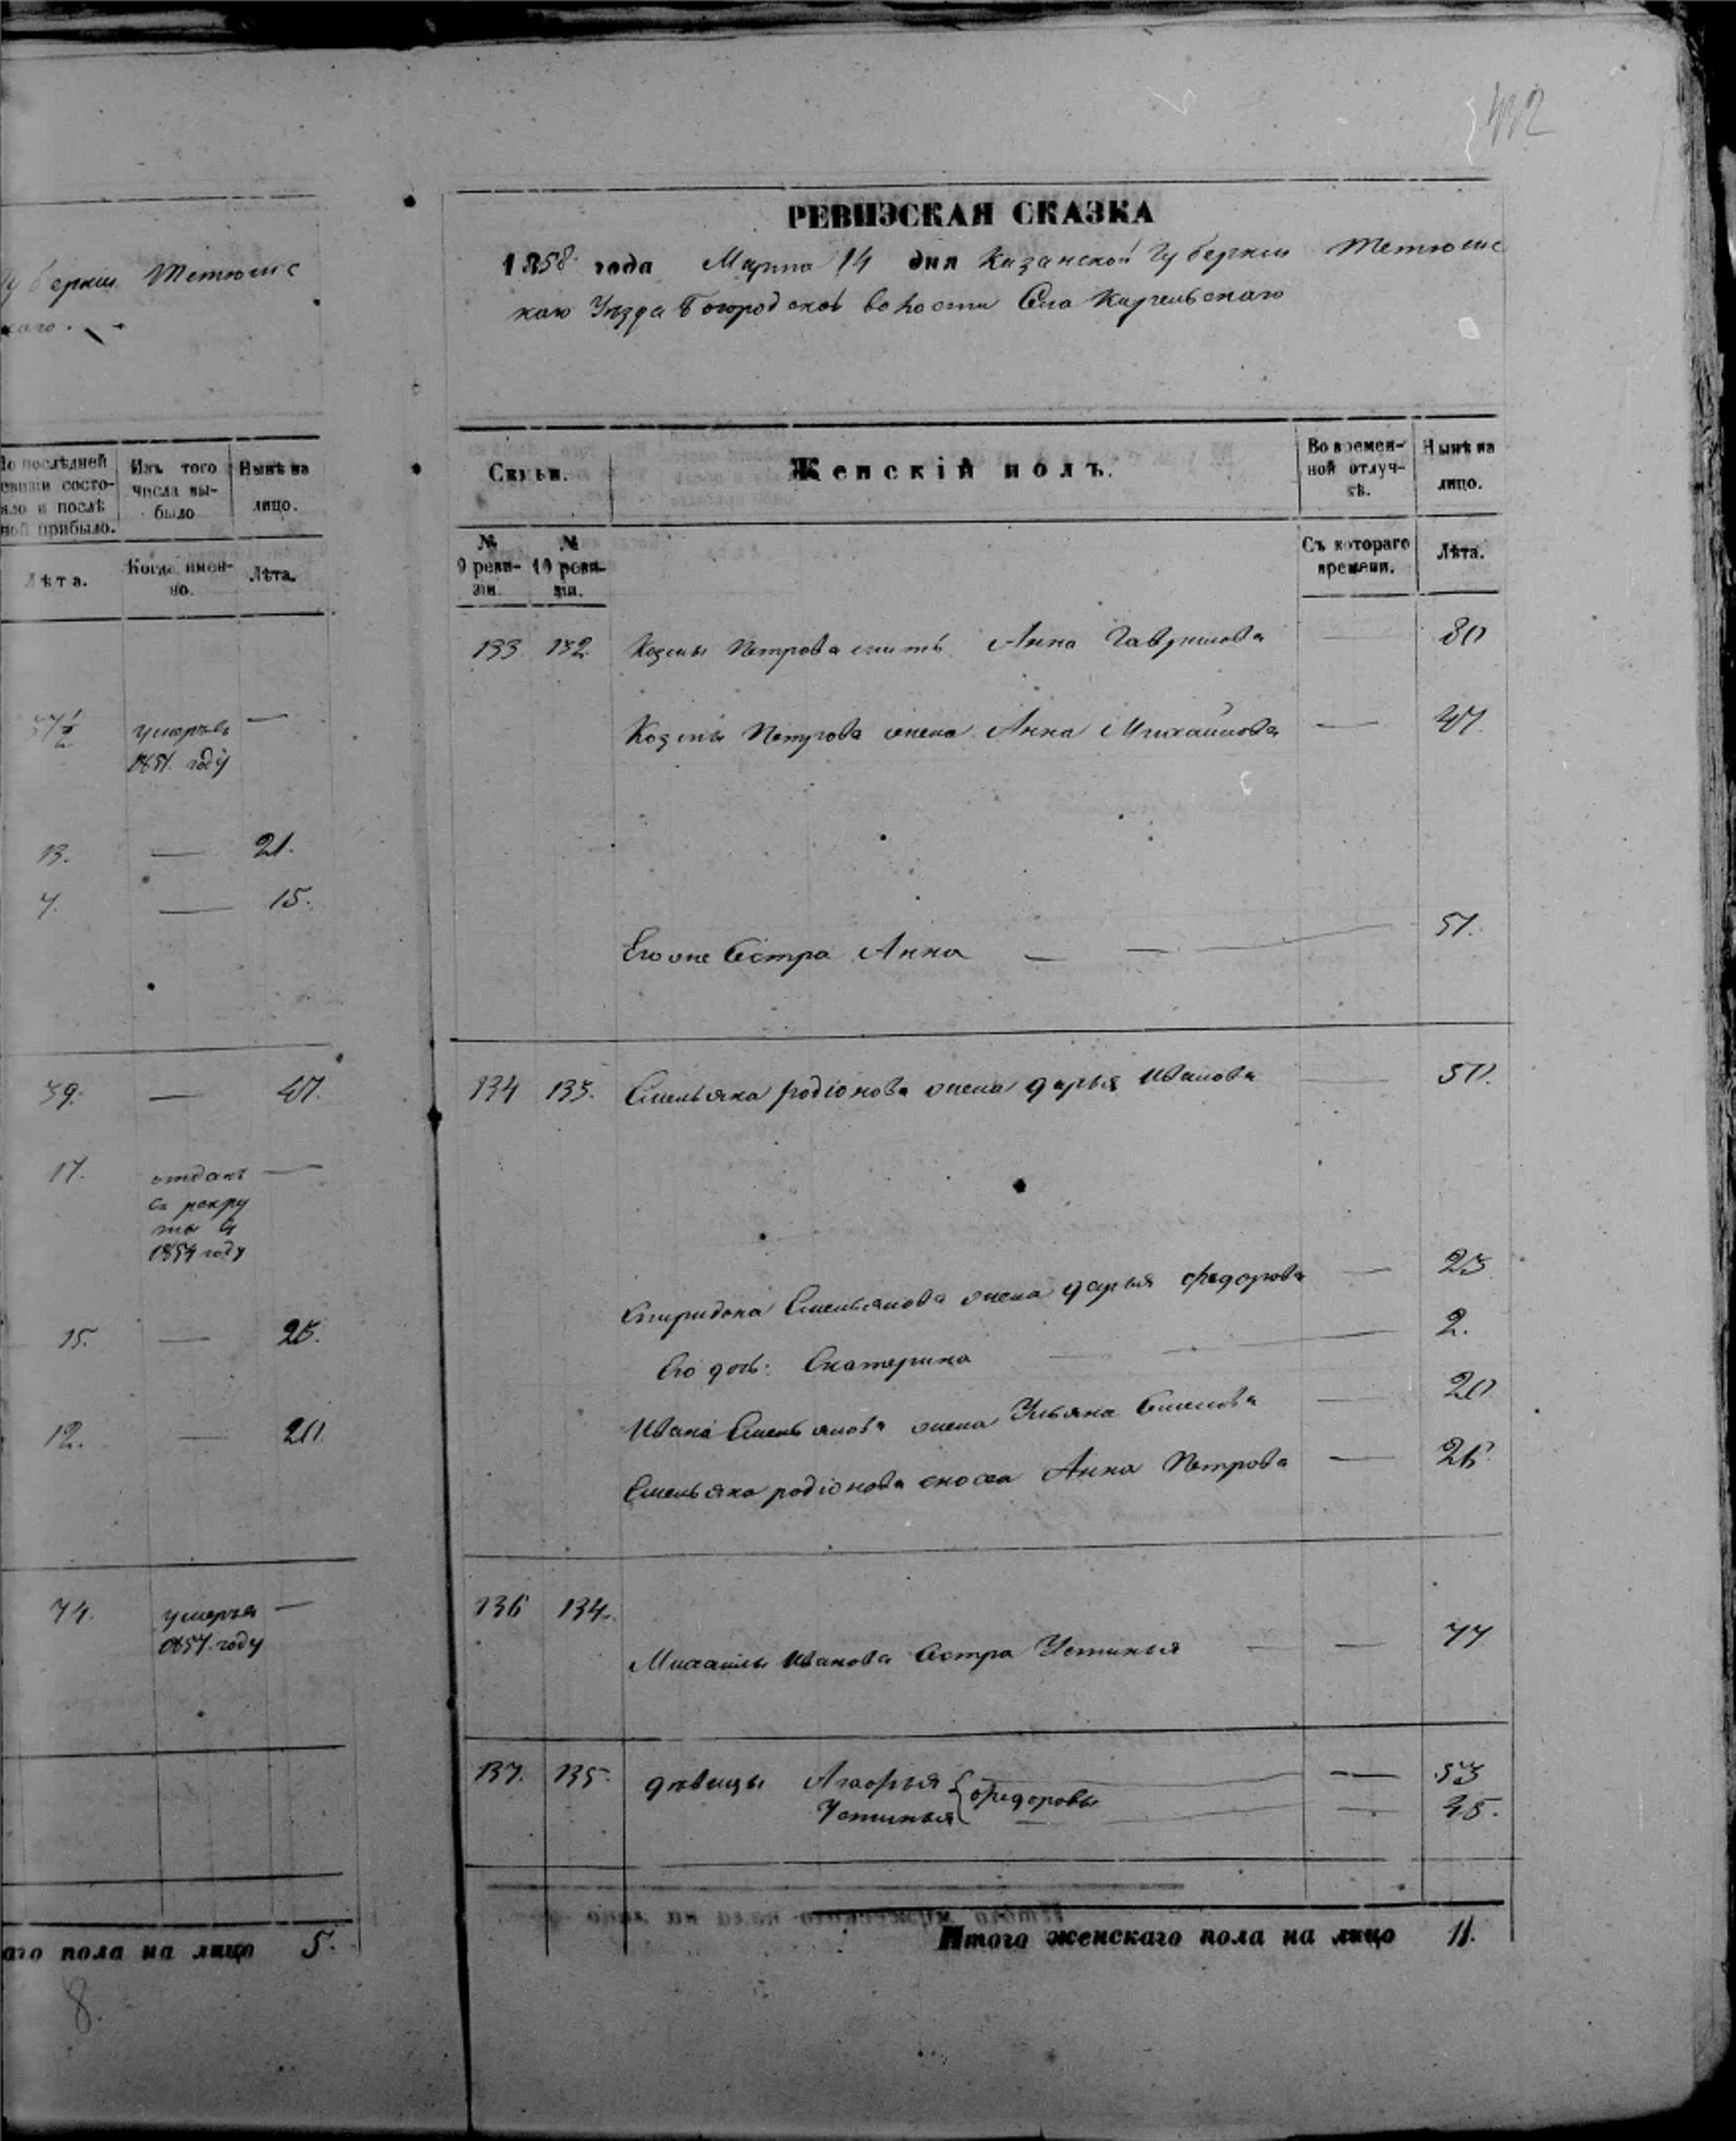 432
губерніи Тетюшс
каго.
По послѣдней ревизіи состояло и послѣ ной прибыло.
Изъ того числа выбыло
Нынѣ на лицо.
Лѣта.
Когда именно.
Лѣта.
умеръ въ
1851 году
13. — 21.
7. — 15.
39. — 47.
17. отданъ —
въ рекру
ты въ
1854 году
15. — 23.
12. — 20.
74. умеръ въ —
1857 году
аго пола на лицо 5.
8.
РЕВИЗСКАЯ СКАЗКА
1858 года Марта 14 дня Казанской Губерніи Тетюшс
каго Уѣзда Богородской волости Села Киртельскаго
Семьи.
Женскій полъ.
Во временной отлучкѣ.
Нынѣ на лицо.
№ 9 ревизіи.
№ 10 ревизіи.
Съ котораго времени.
Лѣта.
133 132. Козмы Петрова мать Анна Гаврилова — 80
Козмы Петрова жена Анна Михайлова — 47.
Его же Сестра Анна — 51.
134 133. Емельяна родіонова жена дарья Иванова — 50.
Спиридона Емельянова жена дарья федорова — 23
Его дочь: Екатерина — 2.
Ивана Емельянова жена Ульяна Семенова — 20
Емельяна родіонова сноха Анна Петрова — 26
136 134.
Михаилы Иванова Сестра Устинья — 77
137. 135. дѣвицы Агафья { федоровы — 53
Устинья — 45.
Итого женскаго пола на лицо 11.